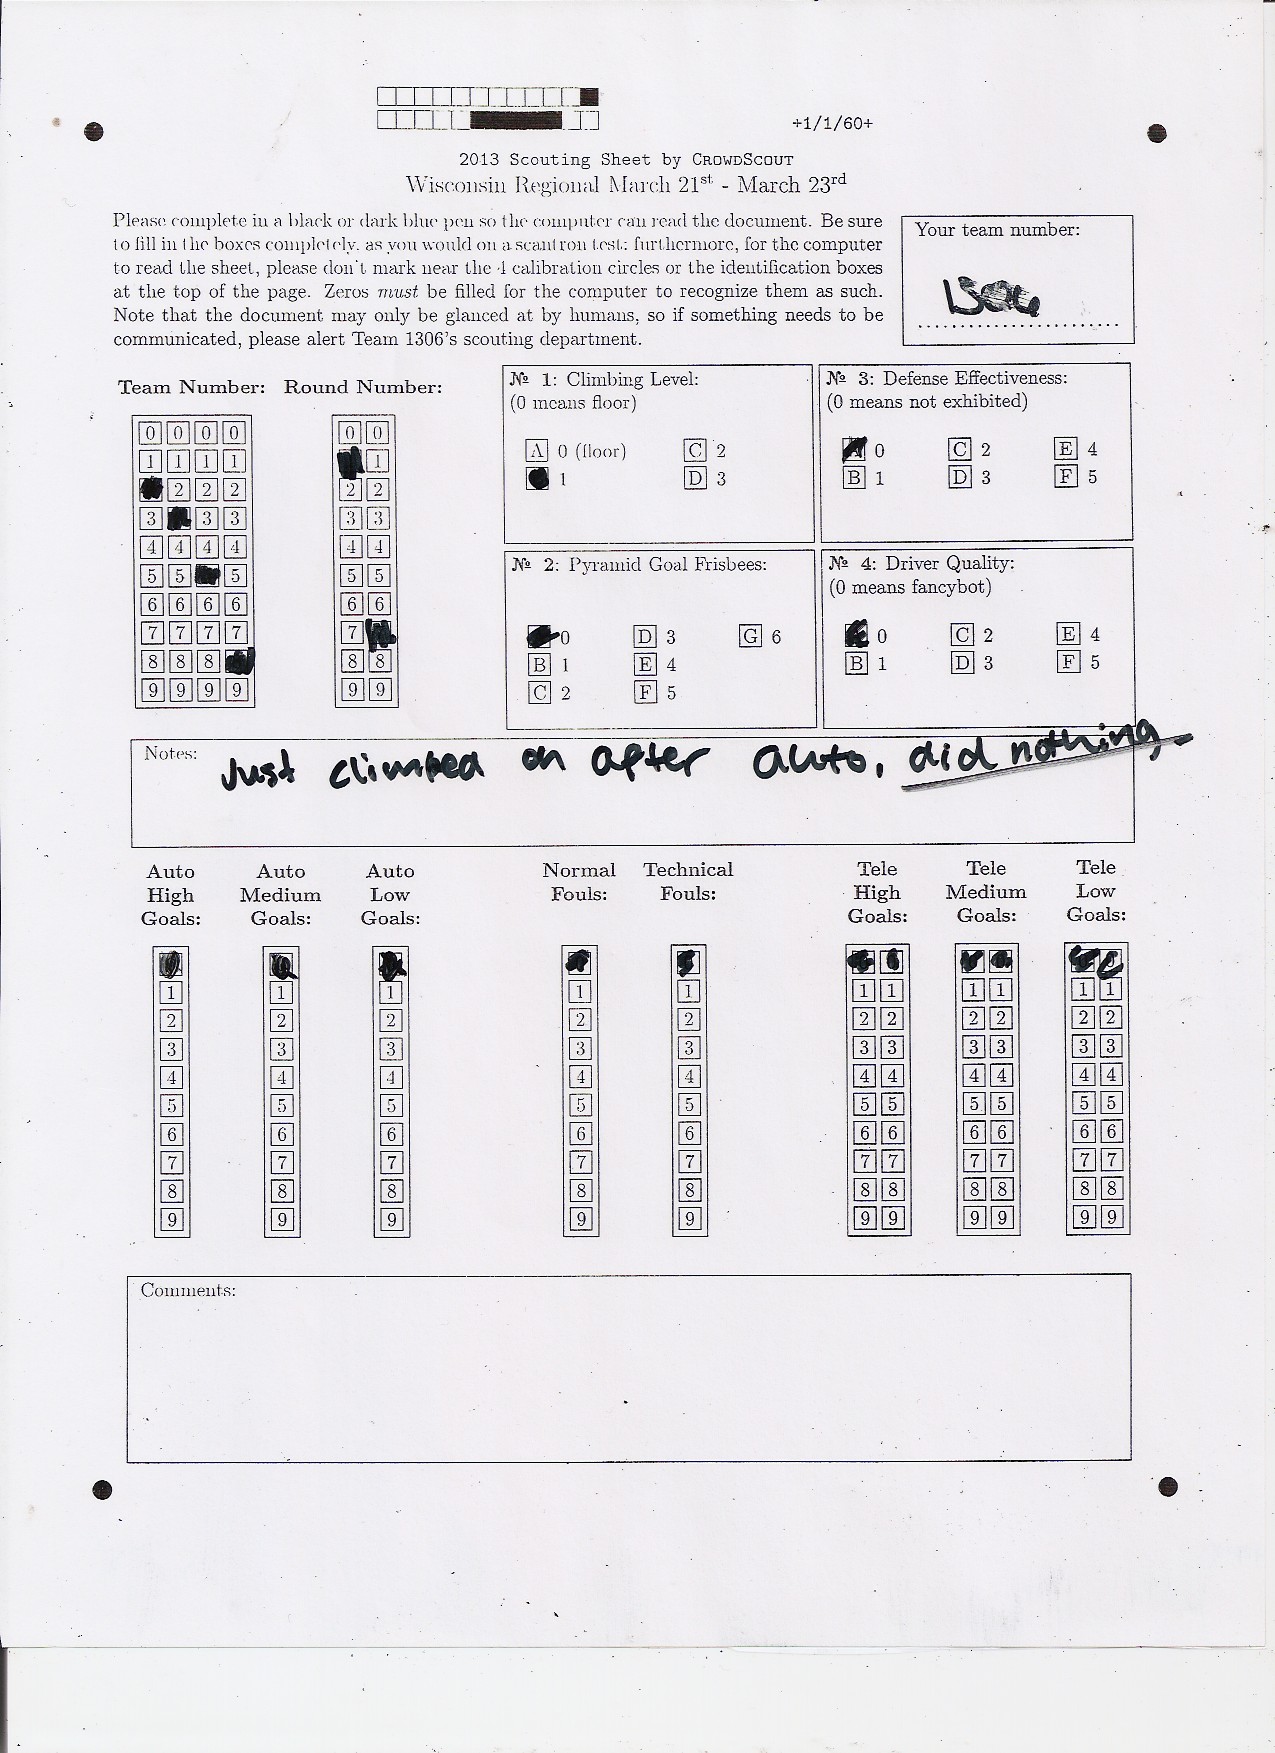 +1/1/60+
2013 Scouting Sheet by CrowdScout
Wisconsin Regional March 21st - March 23rd
Please complete in a black or dark blue pen so the computer can read the document. Be sure
to fill in the boxes completely, as you would on a scantron test; furthermore, for the computer
to read the sheet, please don't mark near the 4 calibration circles or the identification boxes
at the top of the page. Zeros must be filled for the computer to recognize them as such.
Note that the document may only be glanced at by humans, so if something needs to be
communicated, please alert Team 1306's scouting department.
Your team number:
Team Number: Round Number:
0 0 0 0 0 0
1 1 1 1 1
2 2 2 2 2
3 3 3 3 3
4 4 4 4 4 4
5 5 5 5 5
6 6 6 6 6 6
7 7 7 7 7
8 8 8 8 8
9 9 9 9 9 9
№ 1: Climbing Level:
(0 means floor)
A 0 (floor) C 2
1 D 3
№ 3: Defense Effectiveness:
(0 means not exhibited)
A 0 C 2 E 4
B 1 D 3 F 5
№ 2: Pyramid Goal Frisbees:
0 D 3 G 6
B 1 E 4
C 2 F 5
№ 4: Driver Quality:
(0 means fancybot)
0 C 2 E 4
B 1 D 3 F 5
Notes: Just climbed on after auto, did nothing
Auto High Goals:
Auto Medium Goals:
Auto Low Goals:
Normal Fouls:
Technical Fouls:
Tele High Goals:
Tele Medium Goals:
Tele Low Goals:
1 1 1 1 1 1 1 1 1 1 1
2 2 2 2 2 2 2 2 2 2 2
3 3 3 3 3 3 3 3 3 3 3
4 4 4 4 4 4 4 4 4 4 4
5 5 5 5 5 5 5 5 5 5 5
6 6 6 6 6 6 6 6 6 6 6
7 7 7 7 7 7 7 7 7 7 7
8 8 8 8 8 8 8 8 8 8 8
9 9 9 9 9 9 9 9 9 9 9
Comments: